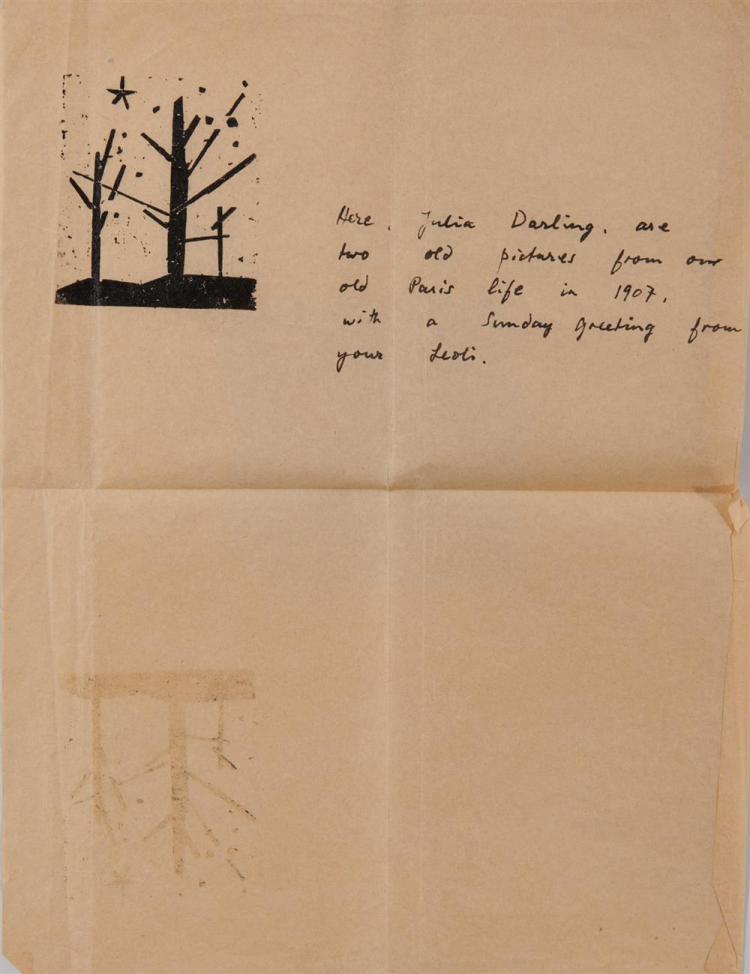 Here, Julia Darling, are
two old pictures from our
old Paris life in 1907,
with a Sunday greeting from
your Leoli.